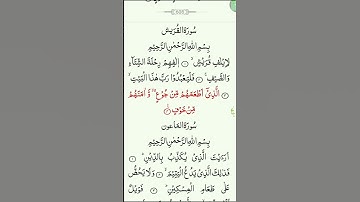 سُورَةُ الْقُرَيْش
بِسْمِ اللهِ الرَّحْمٰنِ الرَّحِيْمِ
لِاِيْلٰفِ قُرَيْشٍ ۙ ۝ اٖلٰفِهِمْ رِحْلَةَ الشِّتَآءِ
وَالصَّيْفِ ۚ ۝ فَلْيَعْبُدُوْا رَبَّ هٰذَا الْبَيْتِ ۙ ۝
الَّذِيْٓ اَطْعَمَهُمْ مِّنْ جُوْعٍ ۙ وَّ اٰمَنَهُمْ
مِّنْ خَوْفٍ ۝
سُورَةُ الْمَاعون
بِسْمِ اللهِ الرَّحْمٰنِ الرَّحِيْمِ
اَرَءَيْتَ الَّذِيْ يُكَذِّبُ بِالدِّيْنِ ؕ ۝
فَذٰلِكَ الَّذِيْ يَدُعُّ الْيَتِيْمَ ۙ ۝ وَلَا يَحُضُّ
عَلٰى طَعَامِ الْمِسْكِيْنِ ؕ ۝ فَوَيْلٌ